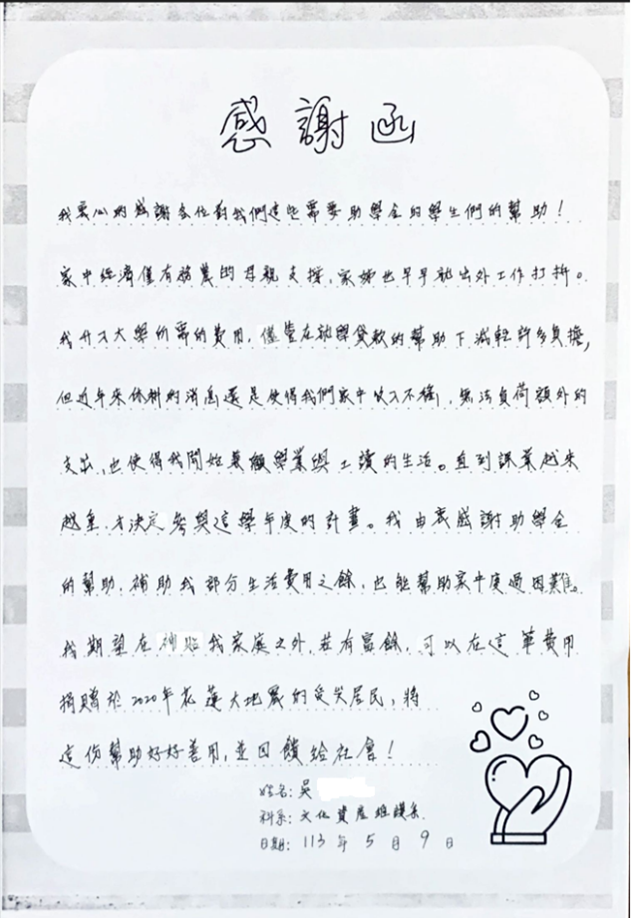 感謝函
我衷心的感謝各位對我們這些需要助學金的學生們的幫助！
家中經濟僅有務農的母親支撐，家姊也早早就出外工作打拚。
我升入大學所需的費用，儘管在就學貸款的幫助下減輕許多負擔，
但近年來休耕的消息還是使得我們家中收入不穩，無法負荷額外的
支出，也使得我開始兼顧學業與工讀的生活。直到課業越來
越重，才決定參與這學年度的計畫。我由衷感謝助學金
的幫助，補助我部分生活費用之餘，也能幫助家中度過困難。
我期望在補貼我家庭之外，若有富餘，可以在這筆費用
捐贈於2020年花蓮大地震的受災居民，將
這份幫助好好善用，並回饋給社會！
姓名：吳
科系：文化資產維護系
日期：113年5月9日